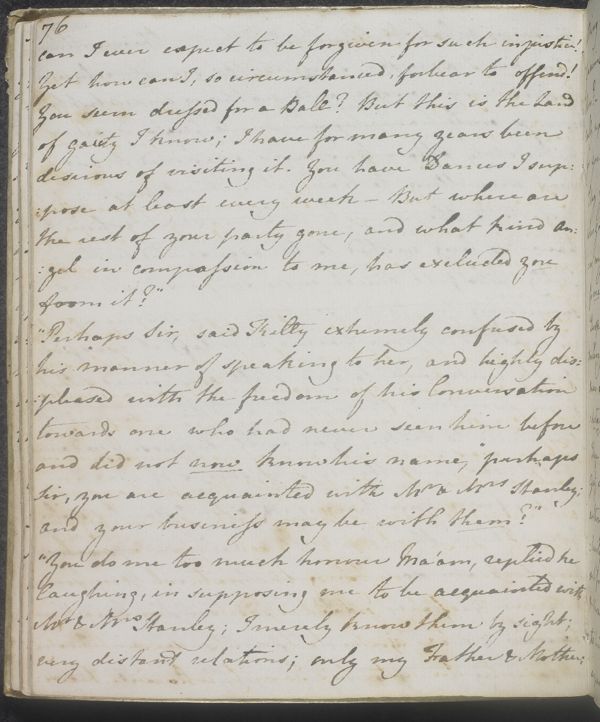 76
can I ever expect to be forgiven for such injustice!
Yet how can I, so circumstanced, forbear to offend!
You seem dressed for a Ball? But this is the Land
of gaiety I know; I have for many years been
desirous of visiting it. You have Dances I sup:
:pose at least every week - But where are
the rest of your party gone, and what kind an:
:gel in compassion to me, has excluded you
from it?"
"Perhaps Sir, said Kitty extremely confused by
his manner of speaking to her, and highly dis:
:pleased with the freedom of his Conversation
towards one who had never seen him before
and did not now know his name, "perhaps
Sir, you are acquainted with Mr & Mrs Stanley;
and your business may be with them?"
"You do me too much honour Ma'am, replied he
laughing, in supposing me to be acquainted with
Mr & Mrs Stanley; I merely know them by sight;
very distant relations; only my Father & Mother;